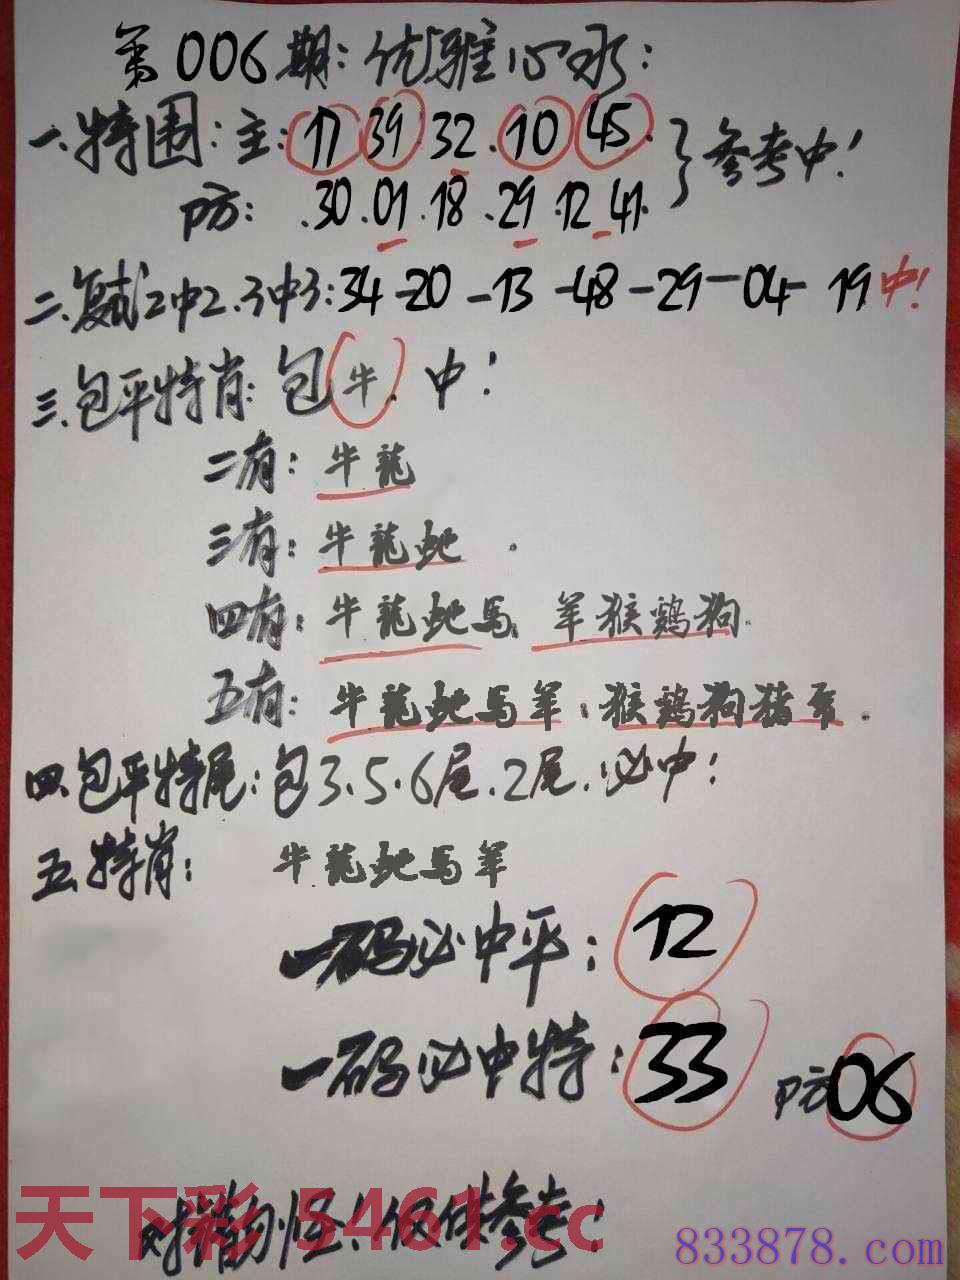 第006期:优雅心水:
一.特围:主:17 39 32.10 45.
防:.30.01.18.29.12 41.
}参考中!
二.复式2中2.3中3:34-20-13-48-29-04-19中!
三.包平特肖:包牛.中!
二有:牛龍
三有:牛龍虵.
四有:牛龍虵馬 羊猴鷄狗.
五有:牛龍虵馬羊.猴鷄狗猪.
四.包平特尾:包3.5.6尾.2尾.必中!
五.特肖:牛.龍虵馬羊
一码必中平:12
一码必中特:33 防06
料勿怪!仅供参考!
天下彩 5461.cc
833878.com